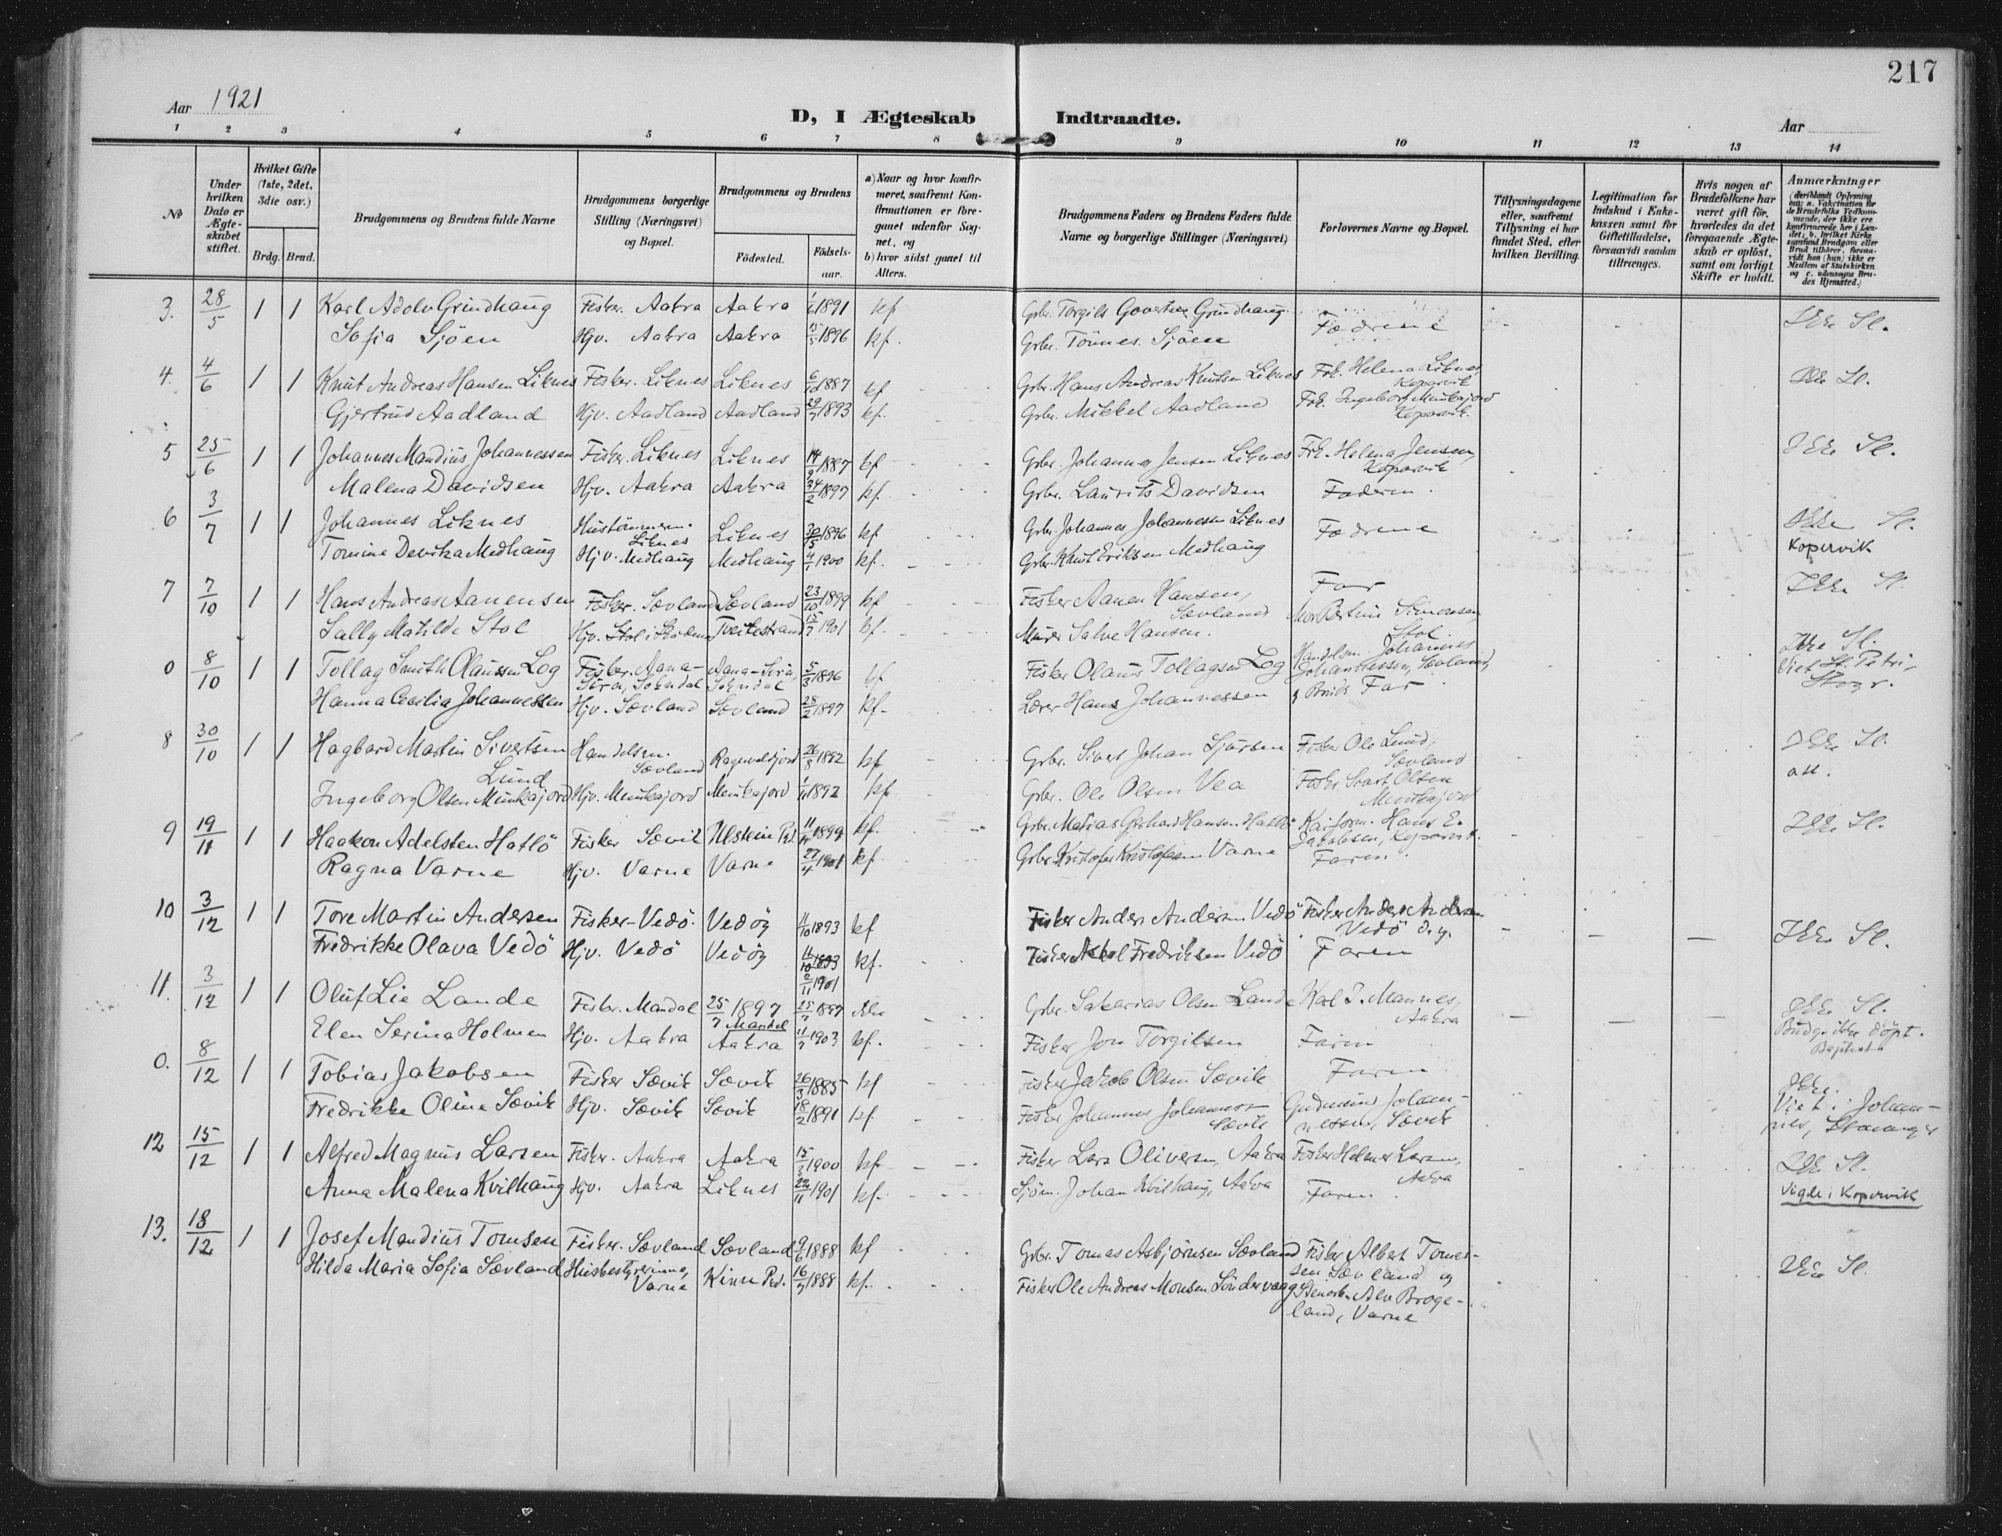 217
Aar 1921
D, I Ægteskab Indtraadte.
Aar
1 2 3 4 5 6 7 8 9 10 11 12 13 14
No
Under hvilken Dato er Ægteskabet stiftet.
Hvilket Gifte (1ste, 2det, 3die osv.)
Brdg. Brud.
Brudgommens og Brudens fulde Navne
Brudgommens borgerlige Stilling (Næringsvei) og Bopæl.
Brudgommens og Brudens
Fødested.
Fødselsaar.
a) Naar og hvor konfirmeret, saafremt Konfirmationen er foregaaet udenfor Sognet, og
b) hvor sidst gaaet til Alters.
Brudgommens Faders og Brudens Faders fulde Navne og borgerlige Stillinger (Næringsvei)
Forlovernes Navne og Bopæl.
Tillysningsdagene eller, saafremt Tillysning ei har fundet Sted, efter hvilken Bevilling.
Legitimation for Indskud i Enkekassen samt for Giftetilladelse, forsaavidt saadan tiltrænges.
Hvis nogen af Brudefolkene har været gift før, hvorledes da det foregaaende Ægteskab er opløst, samt om lovligt Skifte er holdt.
Anmærkninger
3. 28/5 1 1 Karl Adolv Grindhaug Fisker. Aakra Aakra 1891 kf Grbr. Torgils Grindhaug Fædrene Ikke Sl.
Sofia Sjöen Hjv. Aakra Aakra 1896 kf. Grbr. Tönnes Sjöen
4. 4/6 1 1 Knut Andreas Hansen Liknes Fisker. Liknes Liknes 6/10 1887 kf Grbr. Hans Andreas Knutsen Liknes Frk. Helena Liknes Kopervik Ikke Sl.
Gjertrud Aadland Hjv. Aadland Aadland 1893 kf. Grbr. Mikkel Aadland Frk. Ingeborg Munkajord Kopervik.
5 25/6 1 1 Johannes Mandius Johannessen Fisker. Liknes Liknes 14/9 1887 kf Grbr. Johannes Jensen Liknes Frk. Helena Jensen, Kopervik Ikke Sl.
Malena Davidsen Hjv. Aakra Aakra 24/2 1897 kf. Grbr. Laurits Davidsen Faderen.
6 3/7 1 1 Johannes Liknes Liknes Liknes 1896 kf Grbr. Johannes Johannessen Liknes Fædrene Ikke Sl.
Tomine Devika Medhaug Hjv. Medhaug Medhaug 1900 kf. Grbr. Knut Eriksen Medhaug Kopervik
7 7/10 1 1 Hans Andreas Aanensen Fisker. Sævland Sævland 23/10 1899 kf Fisker Aanen Hansen, Sævland Far Ikke Sl.
Sally Matilde Stol Hjv. Stol i Tveitestrand 1901 kf. Murer Salve Hansen. Mor Simonsen, Stol.
0 8/10 1 1 Tollag Smith Olaussen Log Fisker. Aana-Sira, Sokndal Aana-Sira, Sokndal 5/3 1896 kf Fisker Olaus Tollagsen Log Handelsm. Johannes Johannessen, Sævland, Ikke Sl. Viet St. Petri,
Hanna Cecilia Johannessen Hjv. Sævland Sævland 28/2 1897 kf. Lærer Hans Johannessen Bruds Far
8 30/10 1 1 Hagbard Martin Sivertsen Lund Handelsm. Sævland 26/8 1892 kf Grbr. Sivert Johan Sjursen Fisker Ole Lund, Sævland Ikke Sl.
Ingeborg Olsen Munkajord Hjv. Munkajord Munkajord 1892 kf. Grbr. Ole Olsen Vea Olsen Munkajord
9 19/11 1 1 Haakon Adelsten Hatlö Fisker Sævik Ulstein Pd. 1899 kf. Grbr. Matias Gerhard Hansen Hatlö Hans E. Jakobsen, Kopervik. Ikke Sl.
Ragna Varne Hjv. Varne Varne 27/4 1901 kf. Grbr. Kristofer Kristofersen Varne Faren.
10 3/12 1 1 Tore Martin Andersen Fisker-Vedö. Vedöy 11/10 1893 kf Fisker Anders Andersen Vedö Fisker Anders Andersen Vedö Ikke Sl.
Fredrikke Olava Vedö Hjv. Vedö Vedöy 11/10 1893 2/11 1901 kf. Fisker Fredriksen Vedö Faren
11. 3/12 1 1 Oluf Lie Lande Fisker. Mandal 25/7 1897 Mandal 25/7 1897 Ikke Grbr. Sakarias Olsen Lande Karl J. Mannes, Aakra Ikke Sl.
Elen Serina Holmen Hjv. Aakra Aakra 1903 kf. Fisker Jon Torgilsen Faren Brudg. ikke döpt. Baptist
0. 8/12 1 1 Tobias Jakobsen Fisker Sævik Sævik 26/3 1885 kf Fisker Jakob Olsen Sævik Faren Ikke.
Fredrikke Oline Sævik Hjv. Sævik Sævik 18/2 1891 kf. Fisker Johannes Sævik Gudmund Johannessen, Sævik Viet i Johannes, Stavanger
12 15/12 1 1 Alfred Magnus Larsen Fisker. Aakra Aakra 1900 kf. Fisker Lars Oliversen, Aakra Fisker Helmer Larsen, Aakra Ikke Sl.
Anna Malena Kvilhaug Hjv. Aakra Liknes 22/11 1901 kf. Sjöm. Johan Kvilhaug, Aakra Faren. Vigde i Kopervik
13. 18/12 1 1 Josef Mandius Tomsen Fisker. Sævland Sævland 9/6 1888 kf Grbr. Tomas Asbjörnsen Sævland Fisker Albert Tomessen Sævland og
Hilda Maria Sofia Sævland Husbestyrerinne, Varne Kinn Pd. 1888 kf. Fisker Ole Andreas Monsen Söndervaag Alv Brogeland, Varne Ikke Sl.